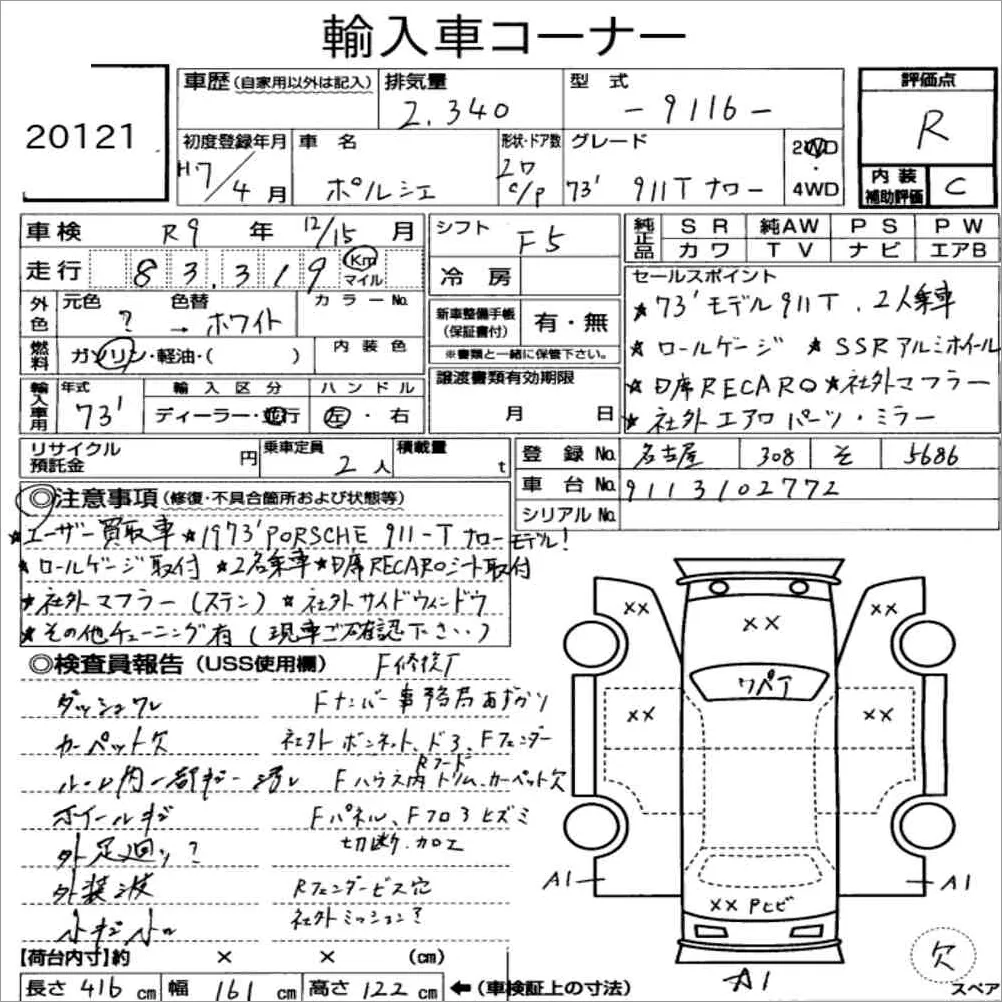 輸入車コーナー
20121
車歴(自家用以外は記入) 排気量 2.340 型式 -911б-
評価点 R
初度登録年月 H.7/4月 車名 ポルシェ 形状・ドア数 2ワ C/P グレード 73' 911T ナロー 2WD・4WD
内装補助評価 C
車検 R9年12/15月 シフト F5
純正品 SR 純AW PS PW
カワ TV ナビ エアB
走行 83.319 Km マイル 冷房
外色 元色 ? 色替 → ホワイト カラーNo.
新車整備手帳(保証書付) 有・無
※書類と一緒に保管下さい。
燃料 ガソリン・軽油・( ) 内装色
譲渡書類有効期限 月 日
輸入車用 年式 73' 輸入区分 ディーラー・並行 ハンドル 左・右
セールスポイント
★73'モデル911T.2人乗車
★ロールゲージ ★SSRアルミホイール
★D席RECARO★社外マフラー
★社外エアロパーツ・ミラー
リサイクル預託金 円 乗車定員 2人 積載量 t
登録No. 名古屋 308 そ 5686
車台No. 9113102772
シリアルNo.
◎注意事項(修復・不具合箇所および状態等)
★ユーザー買取車★1973'PORSCHE 911-T ナローモデル!
★ロールゲージ取付 ★2名乗車★D席RECAROシート取付
★社外マフラー(ステン) ★社外サイドウィンドウ
★その他チューニング有(現車ご確認下さい)
◎検査員報告(USS使用欄) F修復T
ダッシュワレ Fナンバー事務局あずかり
カーペット欠 社外ボンネット、ドア、Fフェンダー
Rフード
ルーム内一部キズ汚レ Fハウス内トリム、カーペット欠
ホイールキズ Fパネル、Fフロアヒズミ
外足廻り? 切断.カロエ
外装波 Rフェンダービス穴
小キズ小凹 社外ミッション?
××
××
××
××
××
ワペT
A1
A1
××PヒビA1
欠
スペア
【荷台内寸】約 × × (cm)
長さ416cm 幅161cm 高さ122cm ←(車検証上の寸法)